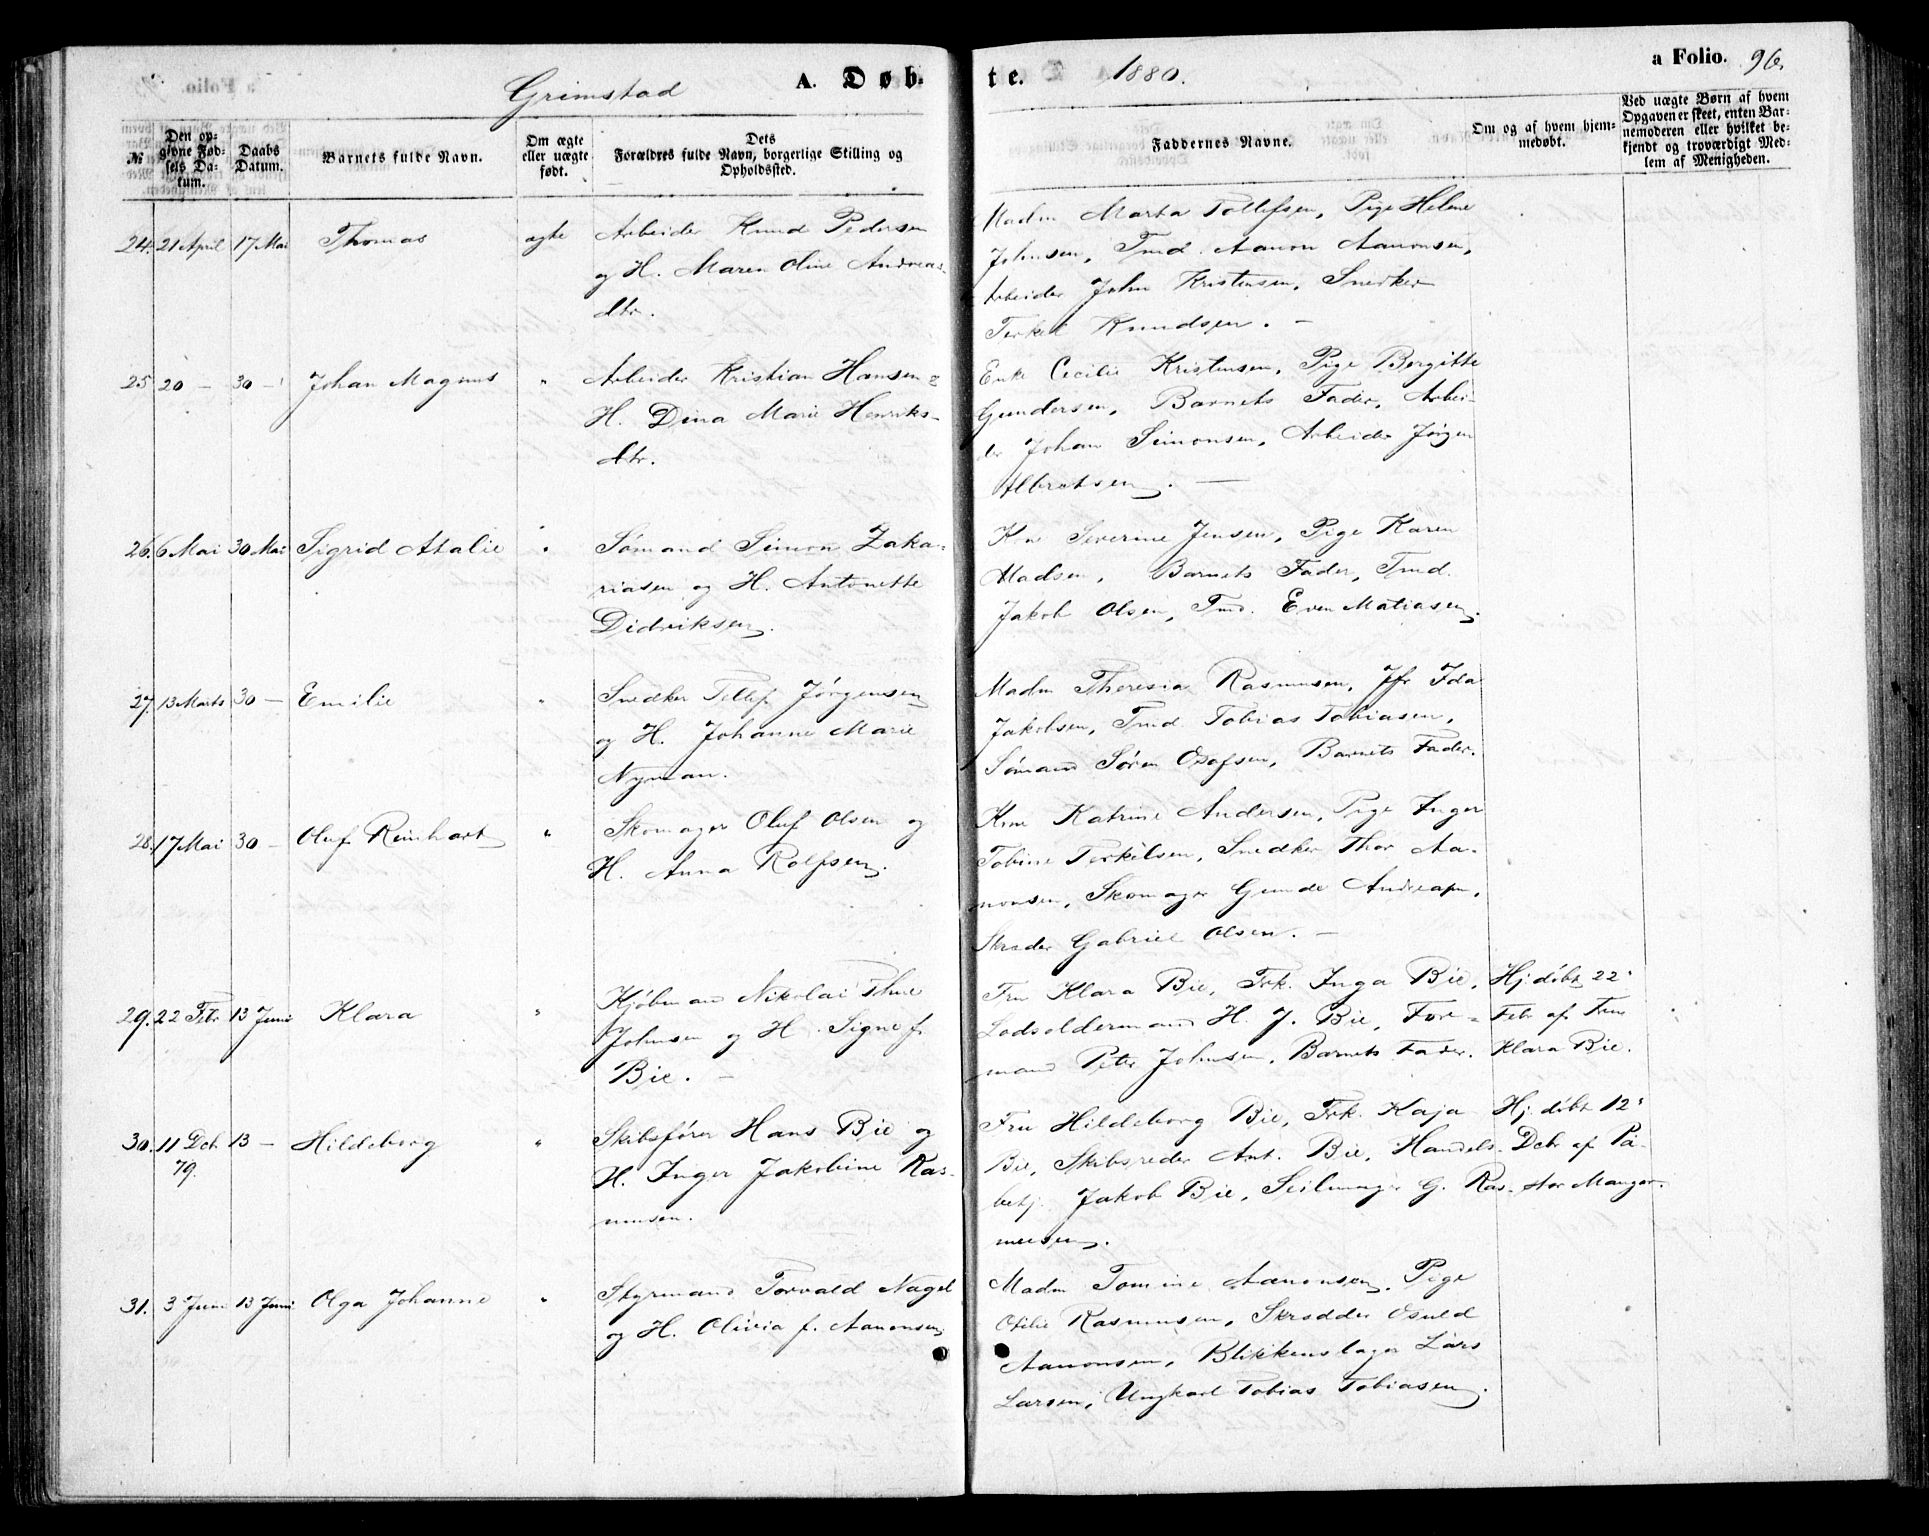 Grimstad
A. Døb-
te.
1880.
a Folio. 96.
№
Den opgivne Fødsels Datum.
Daabs Datum.
Barnets fulde Navn.
Om ægte eller uægte født.
Dets Forældres fulde Navn, borgerlige Stilling og Opholdssted.
Faddernes Navne.
Om og af hvem hjemmedøbt.
Ved uægte Børn af hvem Opgaven er skeet, enten Barnemoderen eller hvilket bekjendt og troværdigt Medlem af Menigheden.
24. 21 April 17 Mai Thomas ægte Arbeider Knud Pedersen
og H. Maren Oline Andreas-
dtr.
Madm Marta Tollefsen, Pige Helene
Johnsen, Tmd. Aanon Aanonsen,
Arbeider John Kristensen, Snedker
Terkel Knudsen. –
25 20 – 30 – Johan Magnus " Arbeider Kristian Hansen &
H. Dina Marie Henriks-
dtr.
Enke Cecilie Kristensen, Pige Bergitte
Gundersen, Barnets Fader, Arbei-
der Johan Simonsen, Arbeider Jørgen
Albretsen. –
26. 6 Mai 30 Mai Sigrid Atalie " Sømand Simon Zaka-
riasen og H. Antonette
Didriksen.
Kne Severine Jensen, Pige Karen
Madsen, Barnets Fader, Tmd.
Jakob Olsen, Tmd. Even Matiasen.
27. 13 Marts 30 – Emilie " Snedker Tellef Jørgensen
og H. Johanne Marie
Nyman.
Madm Theresia Rasmusen, Jfr Ida
Jakobsen, Tmd Tobias Tobiasen,
Sømand Søren Olafsen, Barnets Fader.
28. 17 Mai 30 – Oluf Reinhart " Skomager Oluf Olsen og
H. Anna Rolfsen.
Kne Katrine Andersen, Pige Inger
Tobine Terkelsen, Snedker Thor Aa-
nonsen, Skomager Gunde Andreasen,
Skræder Gabriel Olsen. –
29. 22 Febr 13 Juni Klara " Kjøbmand Nikolai Thue
Johnsen og H. Signe f.
Bie. –
Fru Klara Bie, Frk. Inga Bie,
Lodsoldermand H. J. Bie, For-
mand Peter Johnsen, Barnets Fader.
Hj. døbt 22'
Febr af Fru
Klara Bie.
30. 11 Dcb. 79. 13 – Hildeborg " Skibsfører Hans Bie og
H. Inger Jakobine Ras-
musen.
Fru Hildeborg Bie, Frk. Kaja
Bie, Skibsreder Ant. Bie, Handels-
betj. Jakob Bie, Seilmager G. Ras-
musen.
Hj. døbt 12'
Dcbr af Pa-
stor Mangor.
31. 3 Juni 13 Juni Olga Johanne " Styrmand Torvald Nagel
og H. Olivia f. Aanonsen
Madm Tomine Aanonsen, Pige
Otilie Rasmusen, Skrædder Osuld
Aanonsen, Blikkenslager Lars
Larsen, Ungkarl Tobias Tobiasen.